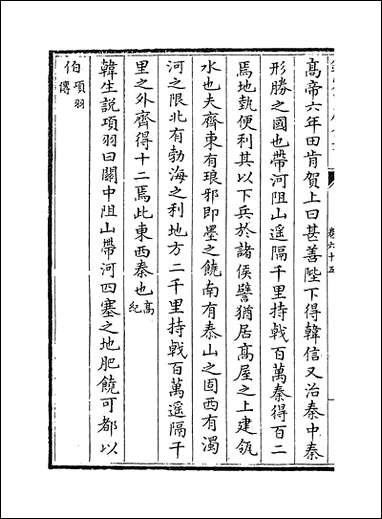 卷六十五
高帝六年田肯賀上曰甚善陛下得韓信又治秦中秦
形勝之國也帶河阻山遥隔千里持㦸百萬秦得百二
焉地埶便利其以下兵於諸侯譬猶居高屋之上建瓴
水也夫齊東有琅邪即墨之饒南有泰山之固西有濁
河之限北有勃海之利地方二千里持㦸百萬遥隔千
里之外齊得十二焉此東西秦也高紀
韓生說項羽曰關中阻山帶河四塞之地肥饒可都以
伯項羽傳